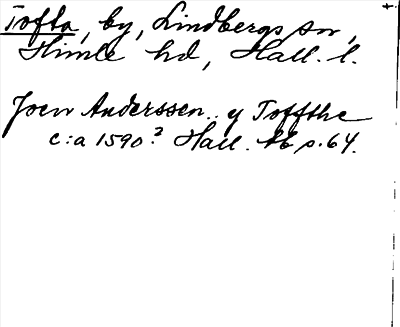 Tofta, by, Lindbergs sn,
Himle hd, Hall. l.
Joen Anderssen.. y Toffthe
c:a 1590? Hall. p. 64.